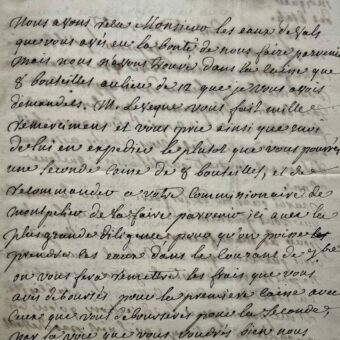 Nous avons reçu Monsieur les eaux de Vals
que vous avés eu la bonté de nous faire parvenir
mais nous n'avons trouvé dans la caisse que
8 bouteilles au lieu de 12 que je vous avois
demandés. M. Leveque vous fait mille
remerciments et vous prie ainsi que moi
de lui en expedier le plutot que vous pourrés
une seconde caisse de 8 bouteilles, et de
recommander a votre commissionaire de
montpelier de la faire parvenir ici avec la
plus grande diligence pour qu'on puisse
prendre les eaux dans le courant de 7bre
on vous fera remettre les frais que vous
avés deboursés pour la premiere caisse avec
ceux que vous debourserés pour la seconde,
par la voie que vous voudrés bien nous